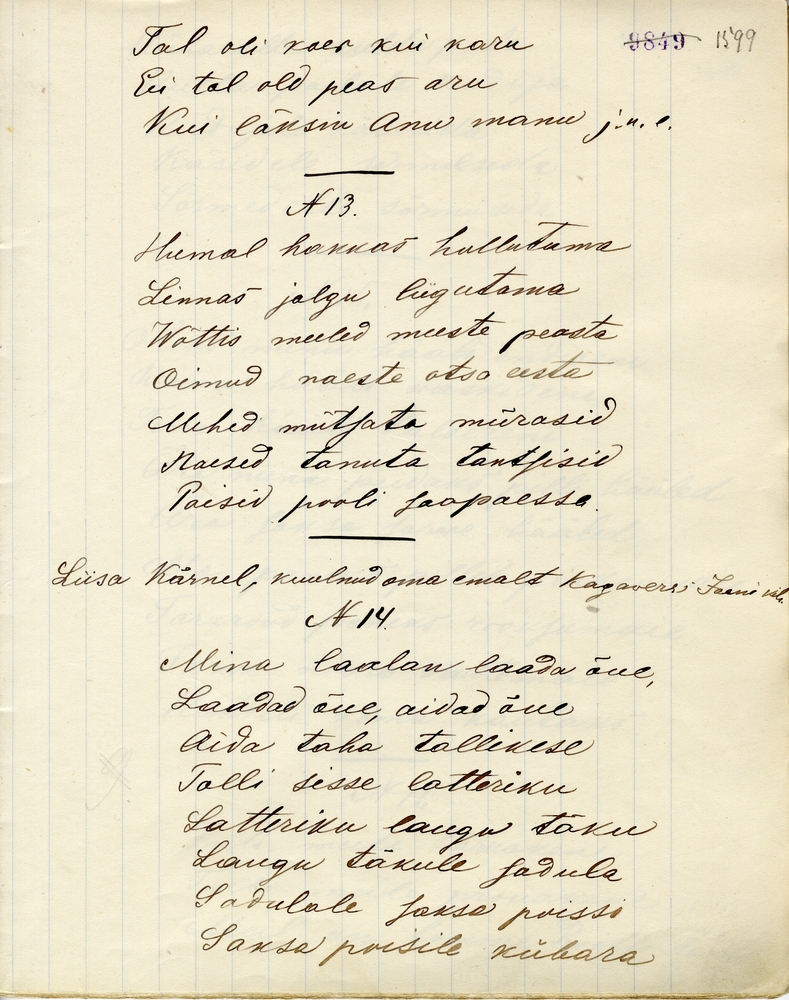 9849 1599
Tal oli koer kui karu
Ei tal old peas aru
Kui läksin Anu manu j.n.e.
N 13.
Humal hakkas hullutama
Linnas jalgu liigutama
Wõttis meeled meeste peasta
Oimud naeste otsa eesta
Mehed mütsata mürasid
Naesed tanuta tantsisid
Poisid pooli saapaessa.
Liisa Kärnel, kuulnud oma emalt Kagaversi Jaani
N 14.
Mina laalan laada õue,
Laadad õue, aidad õue
Aida taha tallikese
Talli sisse latteriku
Latteriku laugu täku
Laugu täkule sadula
Sadulale saksa poissi
Saksa poisile kübara